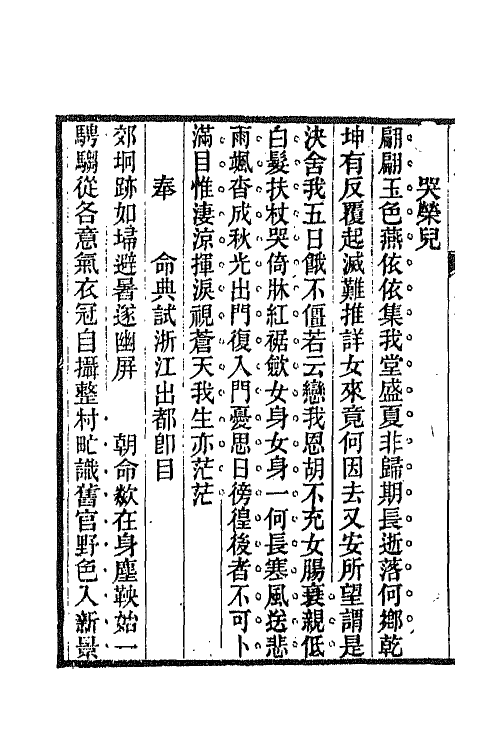 哭榮兒
翩翩玉色燕依依集我堂盛夏非歸期長逝落何鄉乾
坤有反覆起滅難推詳女來竟何因去又安所望謂是
決舍我五日餓不僵若云戀我恩胡不充女腸衰親低
白髮扶杖哭倚牀紅裾斂女身女身一何長寒風送悲
雨颯沓成秋光出門復入門憂思日徬徨後者不可卜
滿目惟淒涼揮淚視蒼天我生亦茫茫
奉　命典試浙江出都卽目
郊坰跡如埽避暑遂幽屏　朝命歘在身塵鞅始一
騁騶從各意氣衣冠自攝整村甿識舊官野色入新景